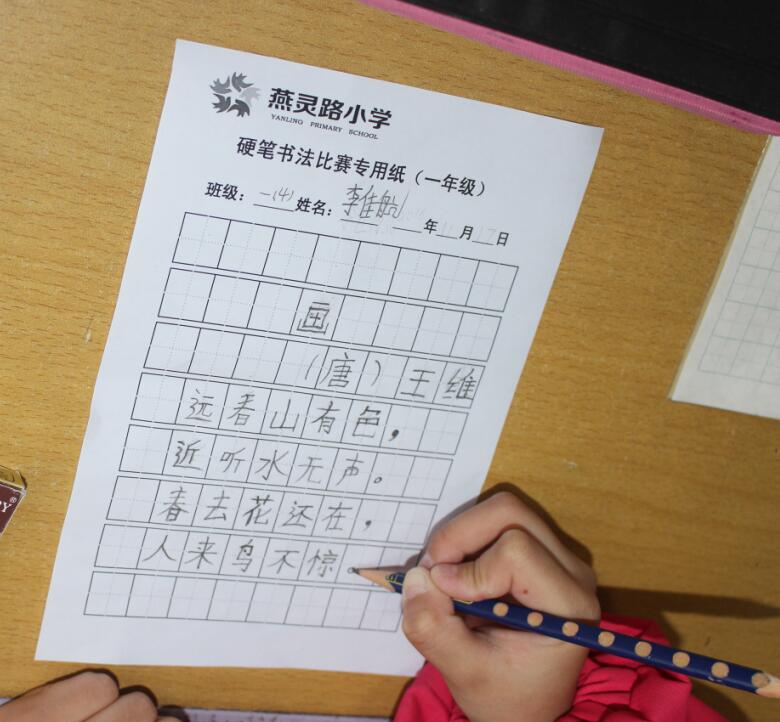 燕灵路小学
YANLING PRIMARY SCHOOL
硬笔书法比赛专用纸（一年级）
班级：一(4)姓名：李佳航 年 月17日
画
（唐）王维
远看山有色，
近听水无声。
春去花还在，
人来鸟不惊。